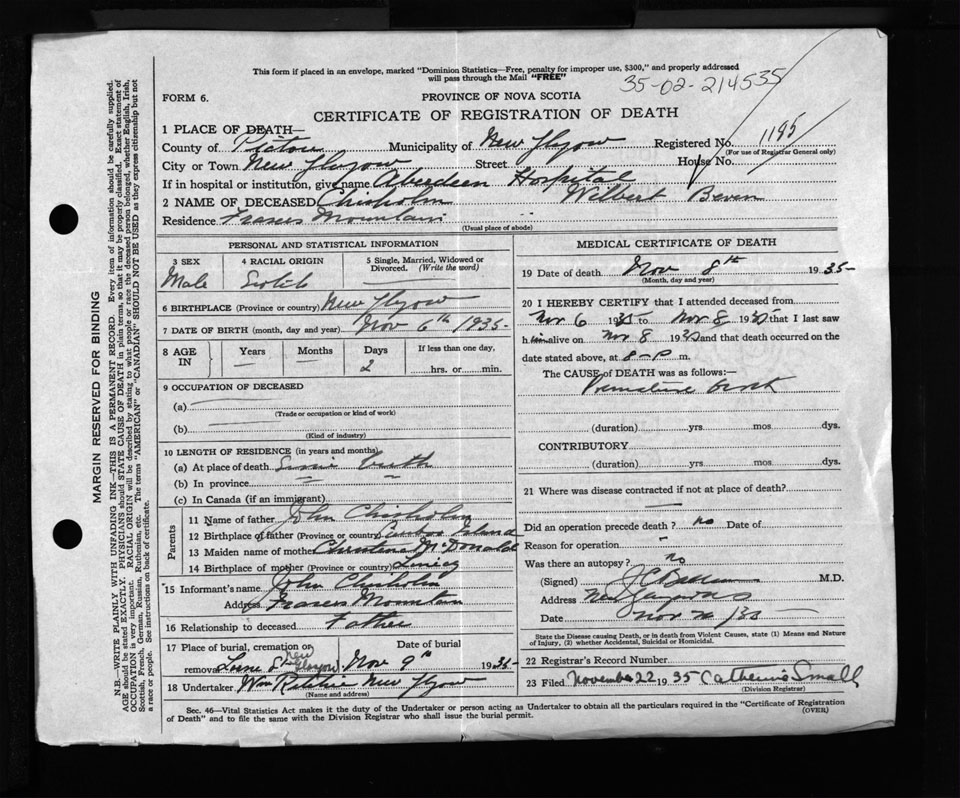 This form if placed in an envelope, marked "Dominion Statistics—Free, penalty for improper use, $300," and properly addressed
will pass through the Mail "FREE"
35-02-214535
FORM 6.
PROVINCE OF NOVA SCOTIA
CERTIFICATE OF REGISTRATION OF DEATH
1 PLACE OF DEATH—
County of Pictou Municipality of New Glasgow Registered No. 1195
(For use of Registrar General only)
City or Town New Glasgow Street House No.
If in hospital or institution, give name Aberdeen Hospital
2 NAME OF DECEASED Chisholm Wilbert
Residence Frasers Mountain
(Usual place of abode)
PERSONAL AND STATISTICAL INFORMATION
3 SEX 4 RACIAL ORIGIN 5 Single, Married, Widowed or
Divorced. (Write the word)
Male Scotch
6 BIRTHPLACE (Province or country) New Glasgow
7 DATE OF BIRTH (month, day and year) Nov 6th 1935
8 AGE IN Years Months Days If less than one day,
2 hrs. or min.
9 OCCUPATION OF DECEASED
(a)
(Trade or occupation or kind of work)
(b)
(Kind of industry)
10 LENGTH OF RESIDENCE (in years and months)
(a) At place of death since birth
(b) In province
(c) In Canada (if an immigrant)
Parents
11 Name of father John Chisholm
12 Birthplace of father (Province or country) Island
13 Maiden name of mother Christena McDonald
14 Birthplace of mother (Province or country)
15 Informant's name John Chisholm
Address Frasers Mountain
16 Relationship to deceased Father
17 Place of burial, cremation or Date of burial
removal Lorne St New Glasgow Nov 9th 1935
18 Undertaker Wm Ritchie New Glasgow
(Name and address)
MEDICAL CERTIFICATE OF DEATH
19 Date of death Nov 8th 1935
(Month, day and year)
20 I HEREBY CERTIFY that I attended deceased from
Nov 6 1935 to Nov 8 1935 that I last saw
him alive on Nov 8 1935 and that death occurred on the
date stated above, at 8-P m.
The CAUSE of DEATH was as follows:—
Premature Birth
(duration) yrs mos dys.
CONTRIBUTORY
(duration) yrs. mos. dys.
21 Where was disease contracted if not at place of death?
Did an operation precede death? no Date of
Reason for operation
Was there an autopsy? no
(Signed) M.D.
Address New Glasgow N S
Date Nov
State the Disease causing Death, or in death from Violent Causes, state (1) Means and Nature
of Injury, (2) whether Accidental, Suicidal or Homicidal.
22 Registrar's Record Number
23 Filed November 22 1935 Catherine Small
(Division Registrar)
Sec. 46—Vital Statistics Act makes it the duty of the Undertaker or person acting as Undertaker to obtain all the particulars required in the "Certificate of Registration
of Death" and to file the same with the Division Registrar who shall issue the burial permit.
(OVER)
MARGIN RESERVED FOR BINDING
N.B.—WRITE PLAINLY WITH UNFADING INK—THIS IS A PERMANENT RECORD. Every item of information should be carefully supplied.
AGE should be stated EXACTLY. PHYSICIANS should STATE CAUSE OF DEATH in plain terms, so that it may be properly classified. Exact statement of
OCCUPATION is very important. RACIAL ORIGIN will be described by stating to what people or race the deceased person belonged, whether English, Irish,
Scottish, French, German, Russian, Ruthenian, etc. The terms "AMERICAN" or "CANADIAN" SHOULD NOT BE USED as they express citizenship but not
a race or people. See instructions on back of certificate.